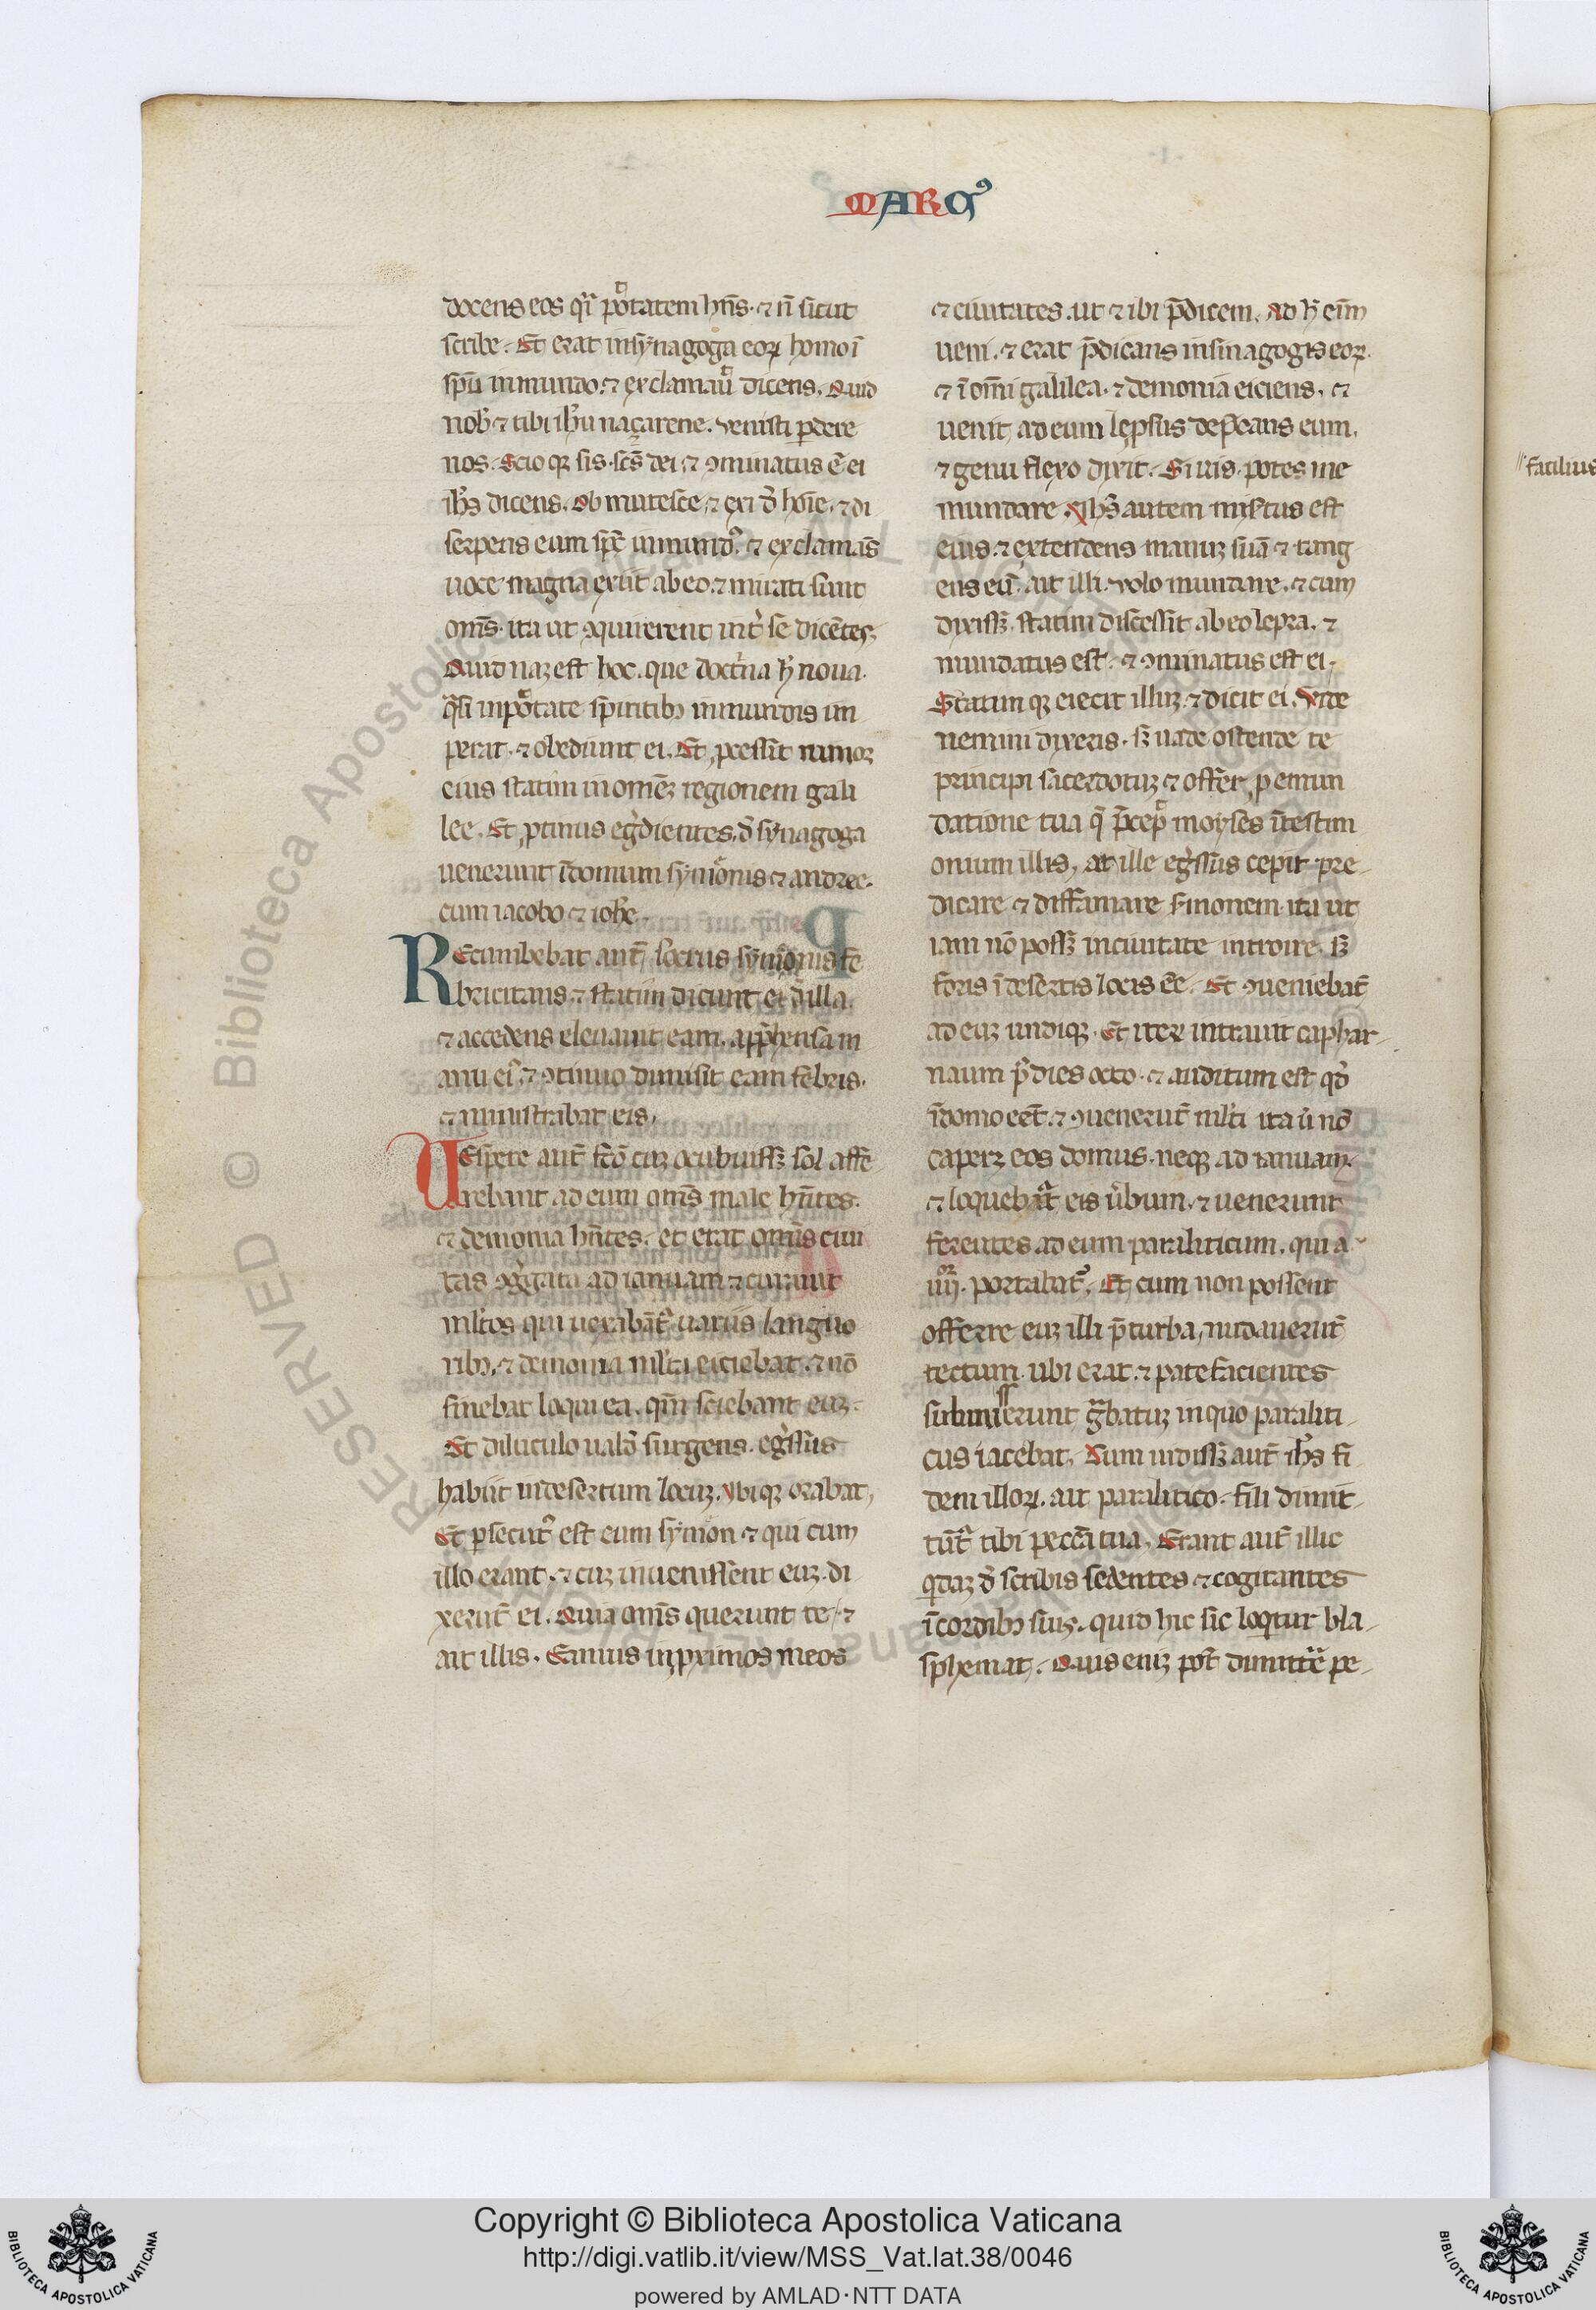 MARCꝰ
docens eos q̃i ptãtatem hñs. ⁊ ñ sicut
scribe. Et erat in synagoga eoꝝ homo ĩ
spũ inmundo. ⁊ exclamauit dicens. Quid
nob̃ ⁊ tibi ihũ naçarene. venisti ꝑdere
nos. Scio qꝛ sis. sc̃s dei. ⁊ ꝯminatus ẽ ei
ih̃s dicens. Obmutesce. ⁊ exi d̃ hoĩe. ⁊ di
serpens eum sp̃c inmundꝰ. ⁊ exclamãs
uoce magna exiit ab eo. ⁊ mirati sunt
om̃s. ita ut ꝯquirerent int̃ se dicẽtes.
Quid naꝫ est hoc. que doct̾na h̾ noua.
q̃si in ptãtate spiritibꝫ inmundis im
perat. ⁊ obediunt ei. Et ꝓcessit rumor
eius statim in omneꝫ regionem gali
lee. Et ꝓtinus eg̾dientes d̃ synagoga
uenerunt ĩ domum symonis ⁊ andree.
cum iacobo ⁊ ioh̃e.
REcumbebat aut̃ socrus symonis fe
bricitans. ⁊ statim dicunt ei d̃ illa.
⁊ accedens eleuauit eam. app̃hensa m
anu eiꝰ. ⁊ ꝯtinuo dimisit eam febris.
⁊ ministrabat eis.
UEspere aut̃ fc̃o cuꝫ ocubuissꝫ sol affe
rebant ad eum om̃s male hñtes.
⁊ demonia hñtes. et erat omnis ciui
tas ꝯg̾gata ad ianuam ⁊ curauit
ml̃tos qui uexabãt̾ uariis languo
ribꝫ. ⁊ demonia ml̃ta eiciebat. ⁊ nõ
sinebat loqui ea. qm̃ sciebant euꝫ.
Et diluculo uald̃ surgens. eg̾ssus
habiit in desertum locuꝫ. Vbiqꝫ orabat,
Et ꝑsecutꝰ est eum symon ⁊ qui cum
illo erant. ⁊ cuꝫ inuenissent euꝫ. di
xerũt ei. Quia om̃s querunt te. ⁊
ait illis. Eamus in ꝓximos meos
⁊ ciuitates. ut ⁊ ibi p̃dicem. Ad h̾ eĩm
ueni. ⁊ erat p̃dicans in sinagogis eoꝝ.
⁊ ĩ om̃i galilea. ⁊ demonia eiciens. ⁊
uenit ad eum lepsus dep̃cans eum.
⁊ genu flexo dixit. Si uis. potes me
mundare. Ih̃s autem misertus est
eius. ⁊ extendens manuꝫ suã ⁊ tang
ens eũ. ait illi. volo mundare. ⁊ cum
dixissꝫ. statim discessit ab eo lepra. ⁊
mundatus est. ⁊ ꝯminatus est ei.
Statim qꝫ eiecit illuꝫ. ⁊ dicit ei. Vide
nemini dixeris. sꝫ uade ostende te
principi sacerdotuꝫ ⁊ offer ꝓ emun
datione tua q̃ p̃cep̾ moyses ĩ testim
onium illis, at ille eg̾ssus cepit pre-
dicare ⁊ diffamare s̾monem. ita ut
iam nõ possꝫ in ciuitate introire. sꝫ
foris ĩ desertis locis eẽ. Et ꝯueniebãt
ad euꝫ undiqꝫ. Et iteꝝ intrauit caphar-
naum p̾ dies octo. ⁊ auditum est qd̃
ĩ domo eẽt. ⁊ ꝯuenerũt ml̃ti ita ũ nõ
caperꝫ eos domus. neqꝫ ad ianuam.
⁊ loquebat̾ eis ũbum. ⁊ uenerunt
ferentes ad eum paraliticum. qui a
iiij. portabat̾. Et cum non possent
offerre euꝫ illi p̃ turba, nudauerũt
tectum. ubi erat. ⁊ patefacientes
submisserunt g̃batuꝫ in quo paraliti
cus iacebat. Cum uidissꝫ aut̃ ih̃s fi
dem illoꝝ. ait paralitico. fili dimit-
tũt̾ tibi peccã tua. Erant aut̃ illic
q̾daꝫ d̃ scribis sedentes ⁊ cogitantes
ĩ cordibꝫ suis. quid hic sic loqtur bla-
sphemat. Quis eniꝫ pot̃ dimitte̾ pe-
facilius
Copyright © Biblioteca Apostolica Vaticana
http://digi.vatlib.it/view/MSS_Vat.lat.38/0046
powered by AMLAD·NTT DATA
BIBLIOTECA APOSTOLICA VATICANA
BIBLIOTECA APOSTOLICA VATICANA